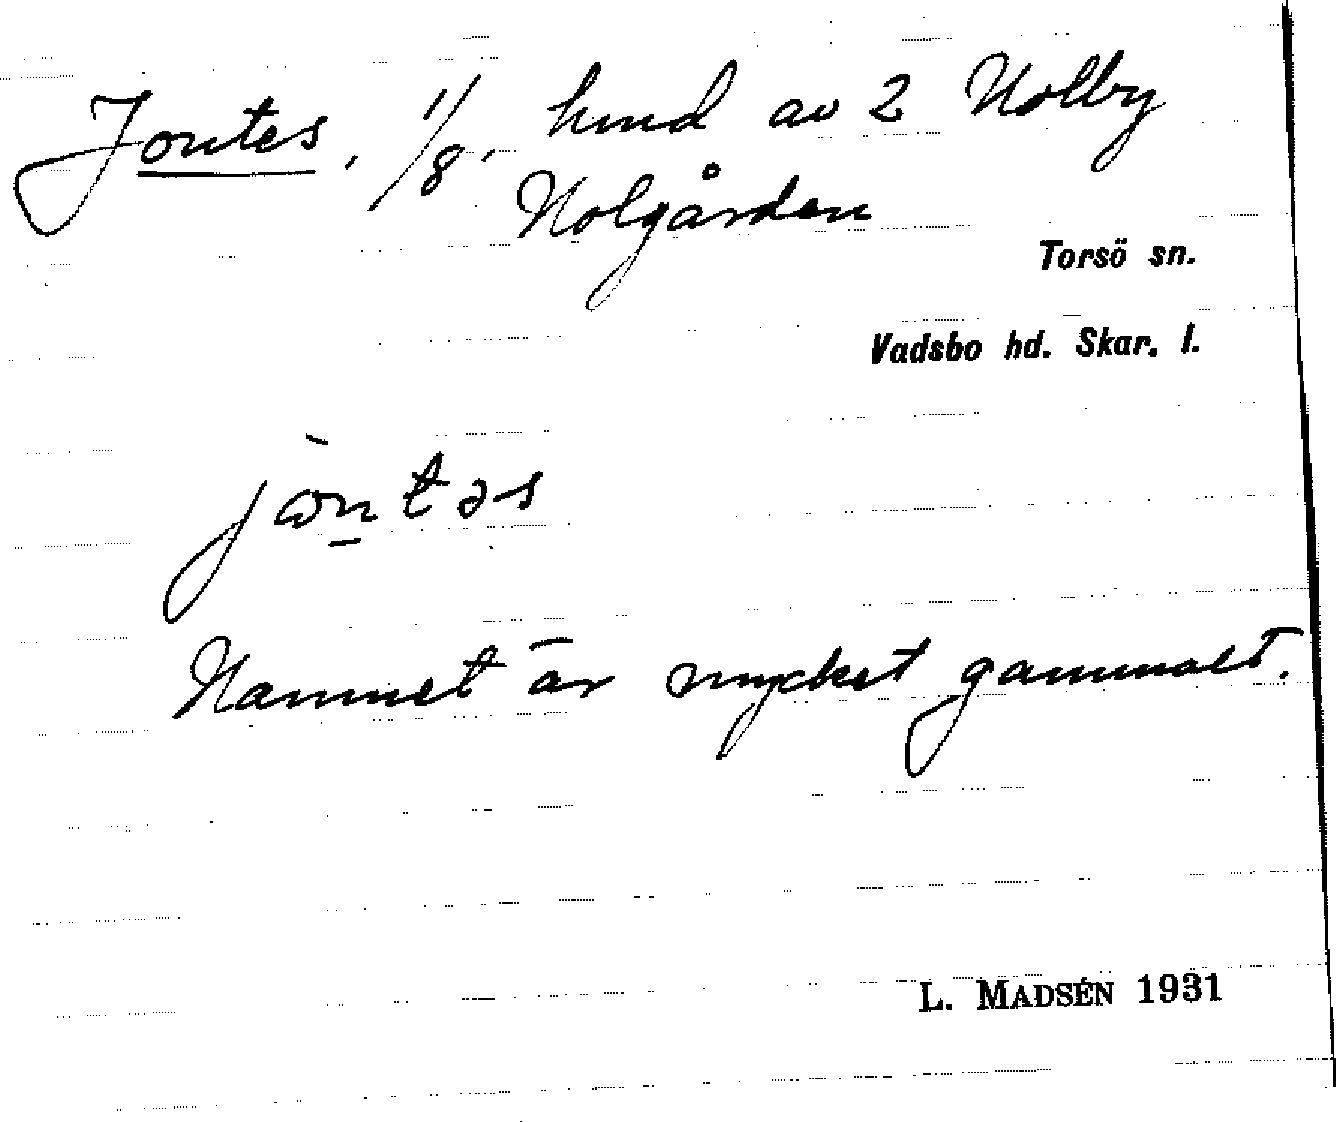 Jontes, 1/8, hmd av 2 Nolby
Nolgården
Torsö sn.
Vadsbo hd. Skar. l.
jòntəs
Namnet är mycket gammalt.
L. MADSÉN 1931